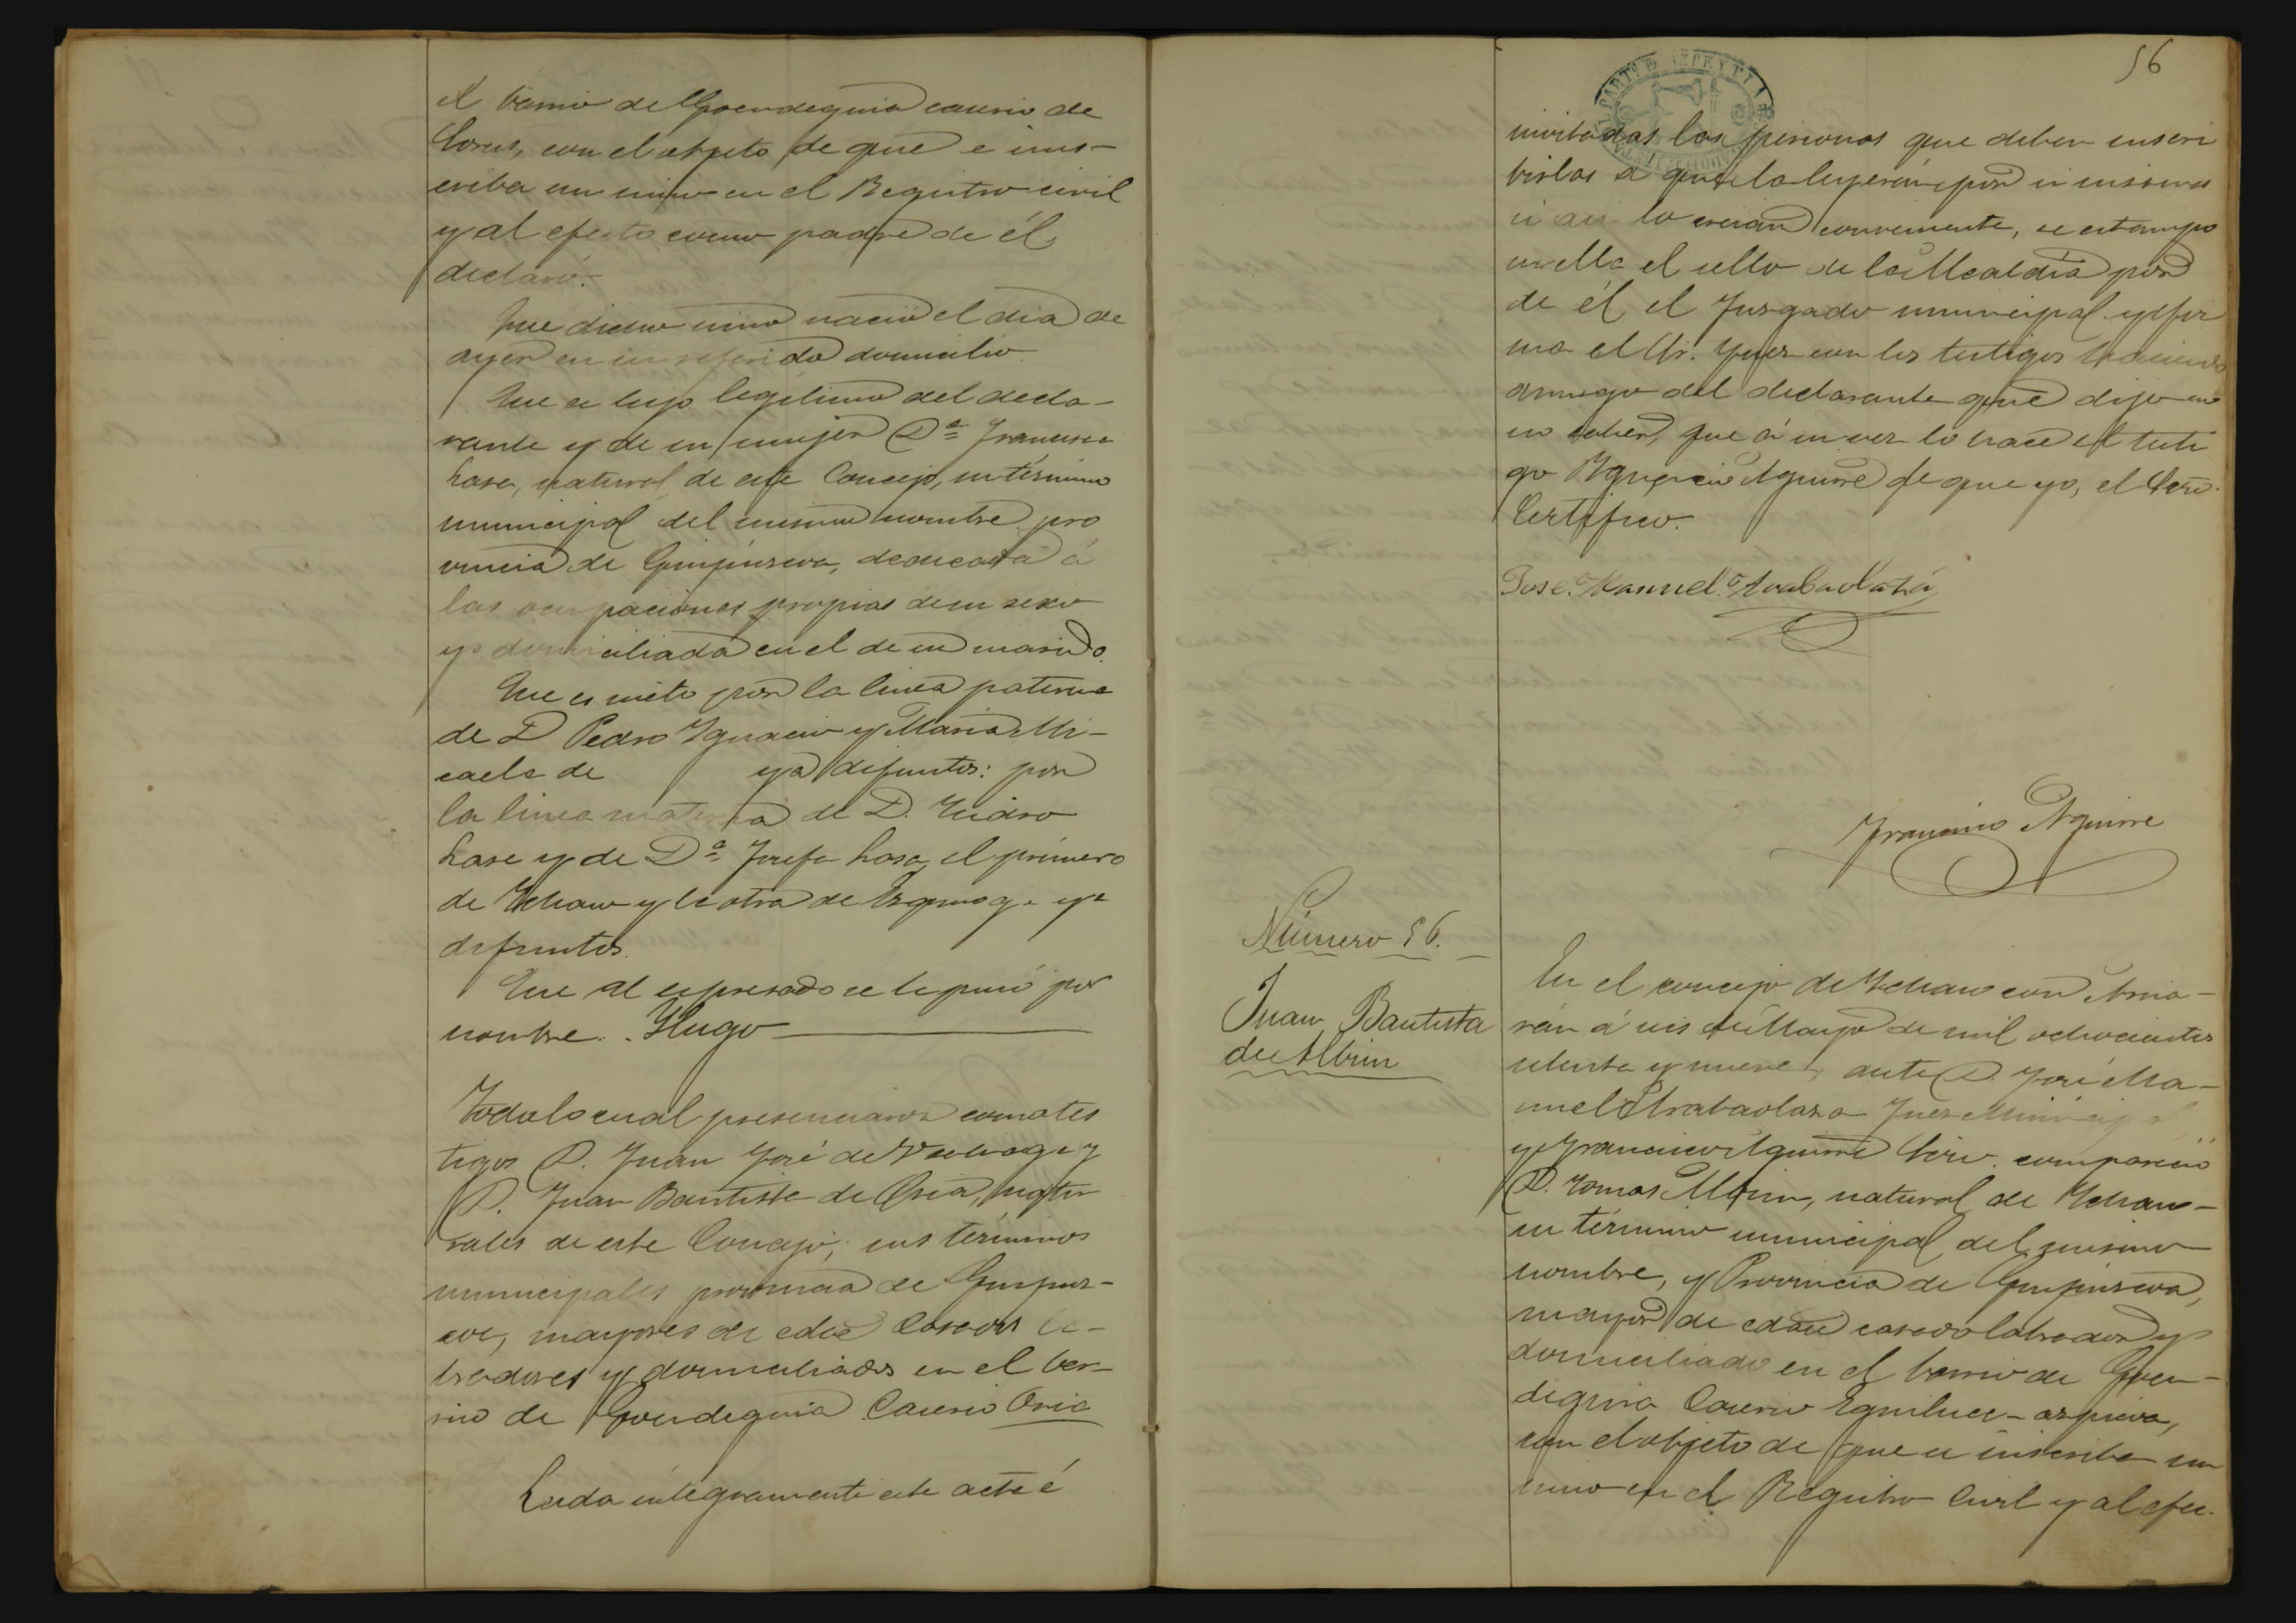 el barrio de Goendeguia caserio de
con el objeto de que se ins-
criba un niño en el Registro civil
y al efecto como padre de él
declaró.
Que dicho niño nació el dia de
ayer en su referido domicilio.
Que es hijo legitimo del decla-
rante y de su mujer Dª Francisca
Lasa, natural de este Concejo, su término
municipal del mismo nombre pro
vincia de Guipúzcoa, dedicada á
las ocupaciones propias de su sexo
y domiciliada en el de su marido.
Que es nieto por la linea paterna
de D Pedro Ygnacio y Maria Mi-
caela de ya difuntos: por
la linea materna de D. Ysidro
Lasa y de Dª Josefa Lasa, el primero
de Ychaso y la otra de Ezquioga ya
difuntos.
Que al espresado se le puso por
nombre. Hugo
Todo lo cual presenciaron como tes
tigos D. Juan José de y
D. Juan Bautista de Oria, natu
rales de este Concejo, sus términos
municipales provincia de Guipuz-
coa, mayores de edad casados la-
bradores y domiciliados en el bar-
rio de Goendeguia Caserio Oria
Leida integramente este acta é
56
invitadas las personas que deben suscri
birlas á que la leyeran por si mismas
si asi lo creian conveniente, se estampó
en ella el sello de la Alcaldia por
de él, el Juzgado municipal y lo fir
ma el Sr. Juez con los testigos
á ruego del declarante que dijo no
no saber, que á su vez lo hace el testi
go Aguirre de que yo, el Scrio.
Certifico.
José Manuel Arabaolaza
Francisco Aguirre
Número 56.
Juan Bautista
de Albin
En el concejo de Ychaso con Arria-
rán á seis de Mayo de mil ochocientos
setenta y nueve, ante D. José Ma-
nuel Arabaolaza Juez Municipal
y Francisco Aguirre Scrio. compareció
D. Tomas Albin, natural de Ychaso-
su término municipal del mismo
nombre, y Provincia de Guipúzcoa,
mayor de edad casado labrador y
domiciliado en el barrio de Goen-
deguia Caserio Eguiluce-azpicoa,
con el objeto de que se inscriba un
niño en el Registro Civil y al efec-